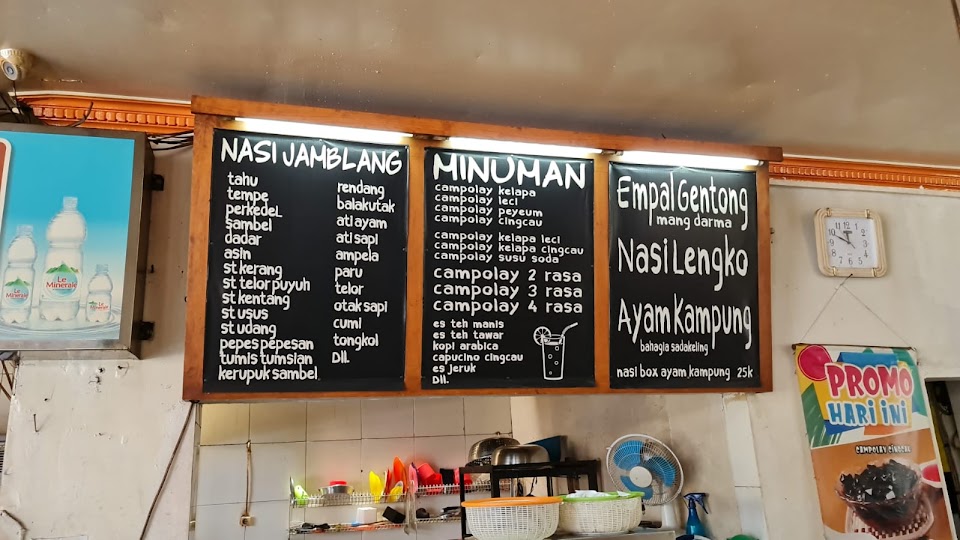 NASI JAMBLANG
tahu
tempe
perkedel
sambel
dadar
asin
st kerang
st telor puyuh
st kentang
st usus
st udang
pepes pepesan
tumis tumsian
kerupuk sambel
rendang
balakutak
ati ayam
ati sapi
ampela
paru
telor
otak sapi
cumi
tongkol
Dll.
MINUMAN
campolay kelapa
campolay leci
campolay peyeum
campolay cingcau
campolay kelapa leci
campolay kelapa cingcau
campolay susu soda
campolay 2 rasa
campolay 3 rasa
campolay 4 rasa
es teh manis
es teh tawar
kopi arabica
capucino cingcau
es jeruk
Dll.
Empal Gentong
mang darma
Nasi Lengko
Ayam Kampung
bahagia sadakeling
nasi box ayam kampung 25k
Le
Minerale
Le
Minerale
Le
Minerale
PROMO
HARI INI
CAMPOLAY CINGCAU